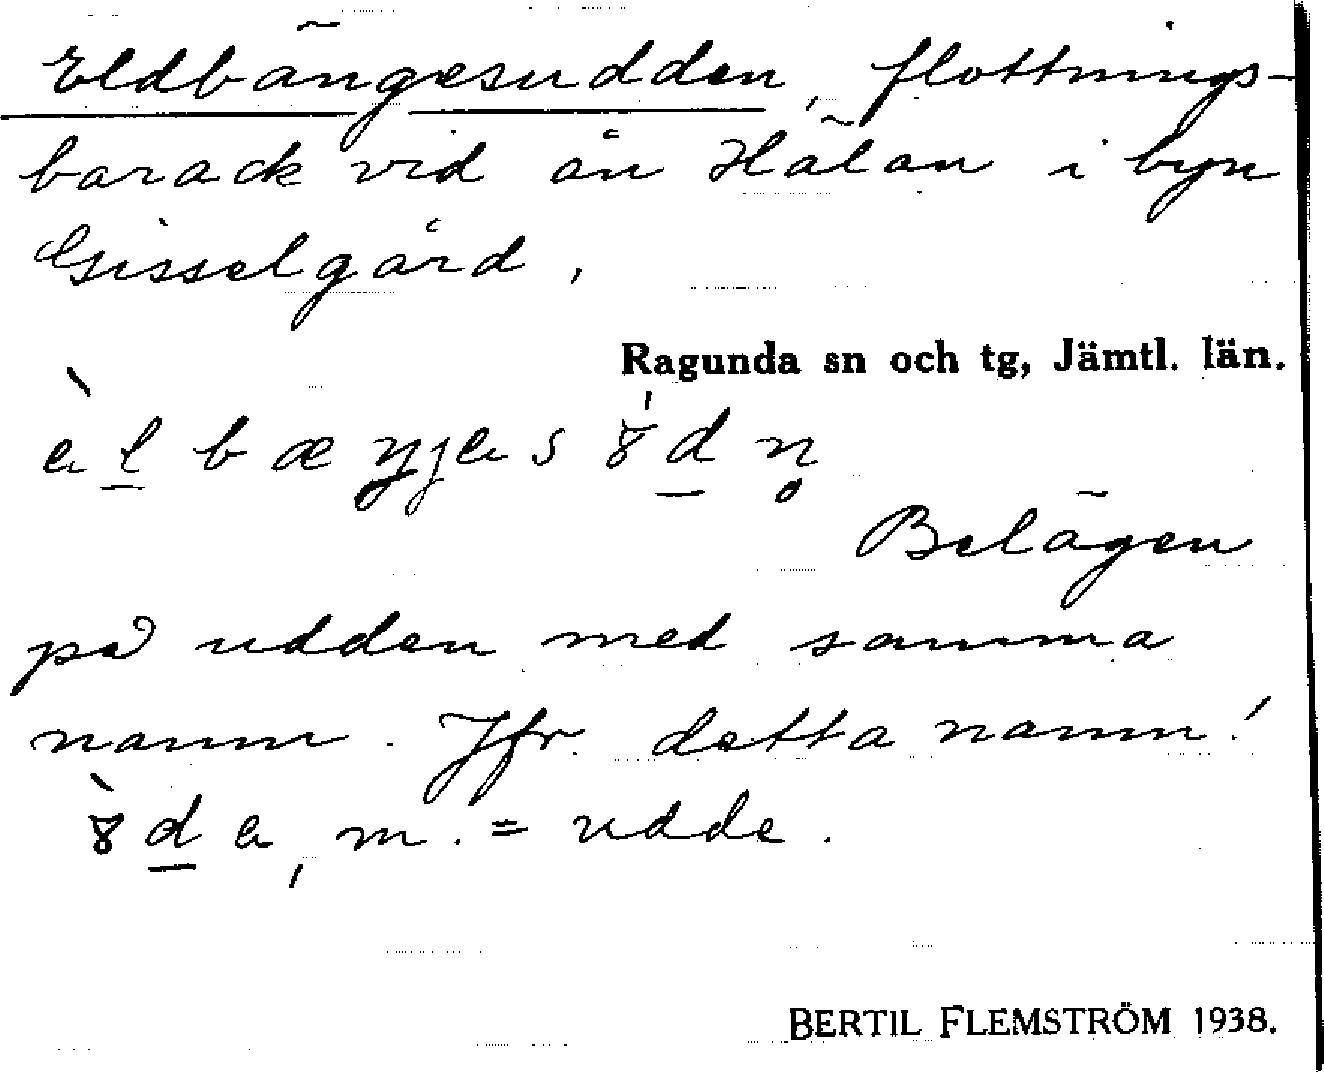 Eldbängesudden, flottnings-
barack vid ån Hälan i byn
Gisselgård,
Ragunda sn och tg, Jämtl. län.
Belägen
på udden med samma
namn. Jfr detta namn!
m. = udde.
BERTIL FLEMSTRÖM 1938.